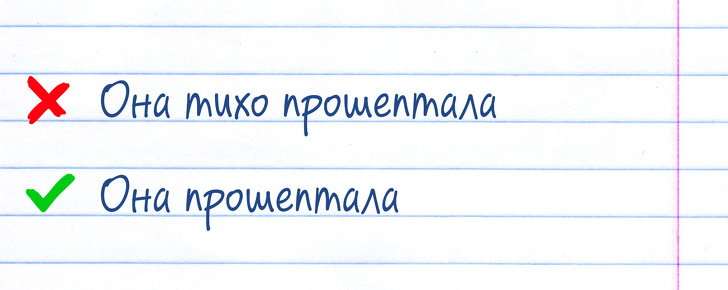 Она тихо прошептала
Она прошептала